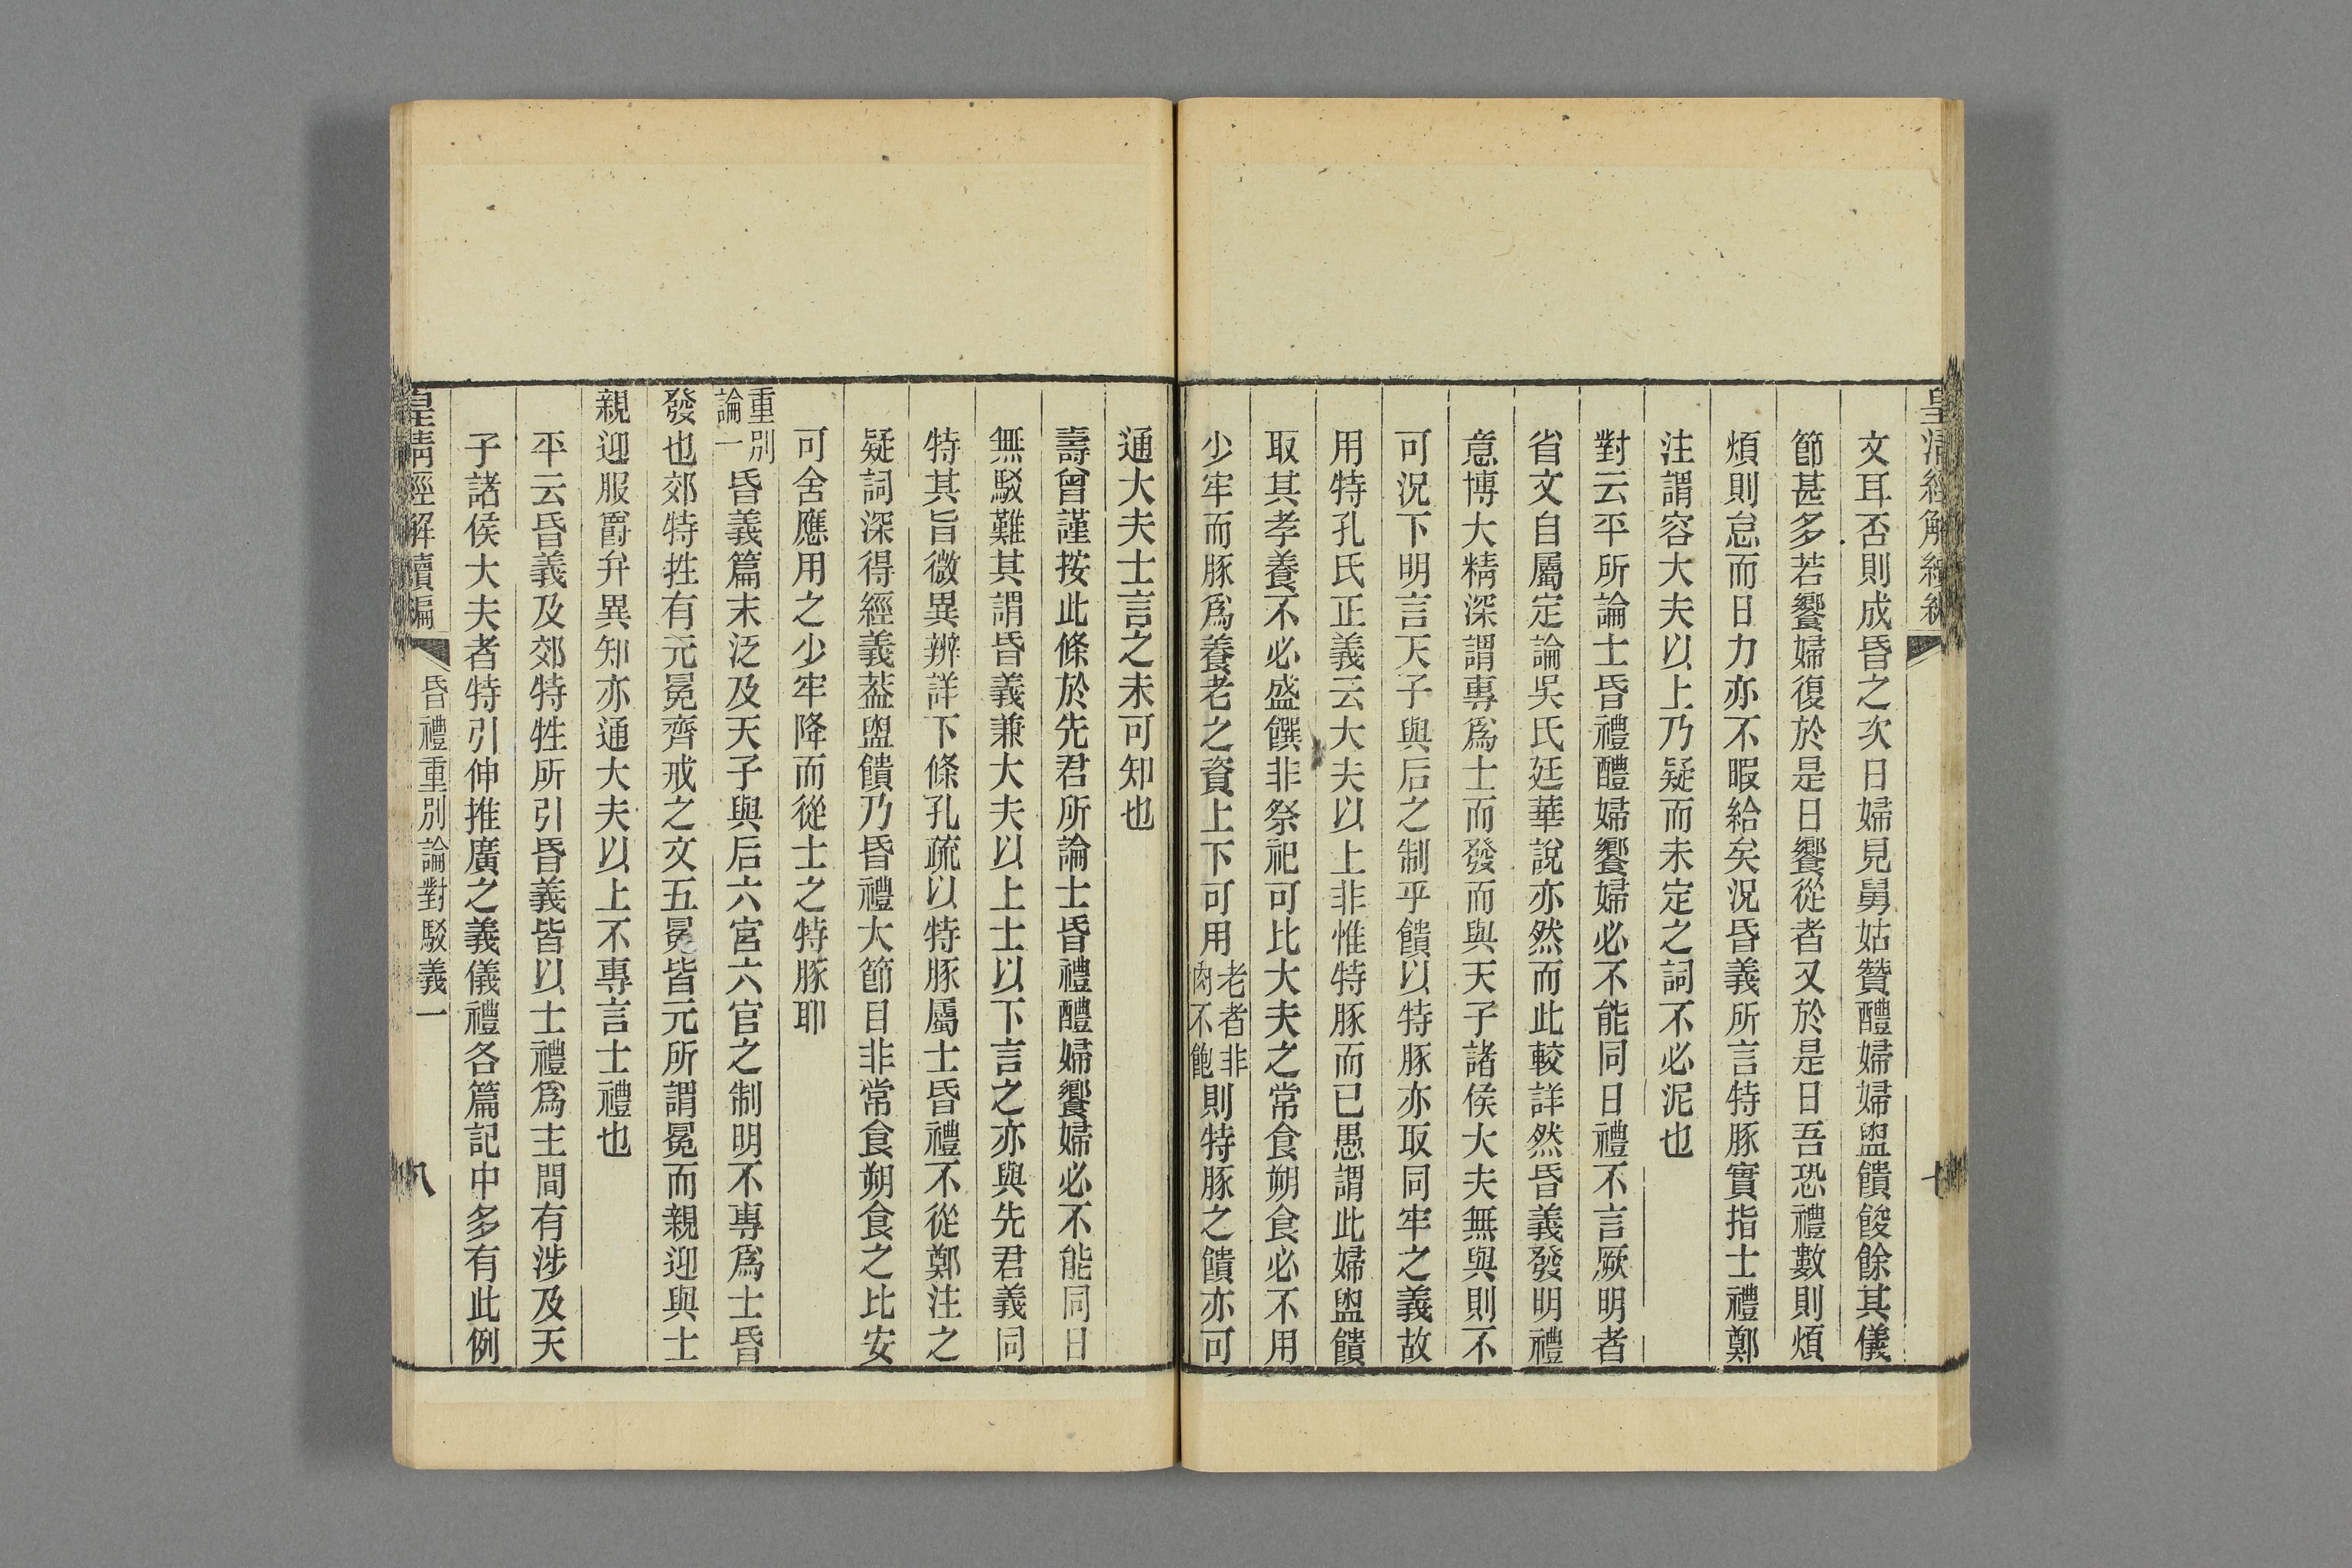 皇清經解續編
文耳否則成昏之次日婦見舅姑贊醴婦婦盥饋餕餘其儀
節甚多若饗婦復於是日饗從者又於是日吾恐禮數則煩
煩則怠而日力亦不暇給矣況昏義所言特豚實指士禮鄭
注謂容大夫以上乃疑而未定之詞不必泥也
對云平所論士昏禮醴婦饗婦必不能同日禮不言厥明者
省文自屬定論吳氏廷華說亦然而此較詳然昏義發明禮
意博大精深謂專爲士而發而與天子諸侯大夫無與則不
可況下明言天子與后之制乎饋以特豚亦取同牢之義故
用特孔氏正義云大夫以上非惟特豚而已愚謂此婦盥饋
取其孝養不必盛饌非祭祀可比大夫之常食朔食必不用
少牢而豚爲養老之資上下可用老者非肉不飽則特豚之饋亦可
通大夫士言之未可知也
壽曾謹按此條於先君所論士昏禮醴婦饗婦必不能同日
無駁難其謂昏義兼大夫以上士以下言之亦與先君義同
特其旨微異辨詳下條孔疏以特豚屬士昏禮不從鄭注之
疑詞深得經義葢盥饋乃昏禮大節目非常食朔食之比安
可舍應用之少牢降而從士之特豚耶
重別論一昏義篇末泛及天子與后六宮六官之制明不專爲士昏
發也郊特牲有元冕齊戒之文五冕皆元所謂冕而親迎與士
親迎服爵弁異知亦通大夫以上不專言士禮也
平云昏義及郊特牲所引昏義皆以士禮爲主間有涉及天
子諸侯大夫者特引伸推廣之義儀禮各篇記中多有此例
皇清經解續編
昏禮重別論對駁義一
八